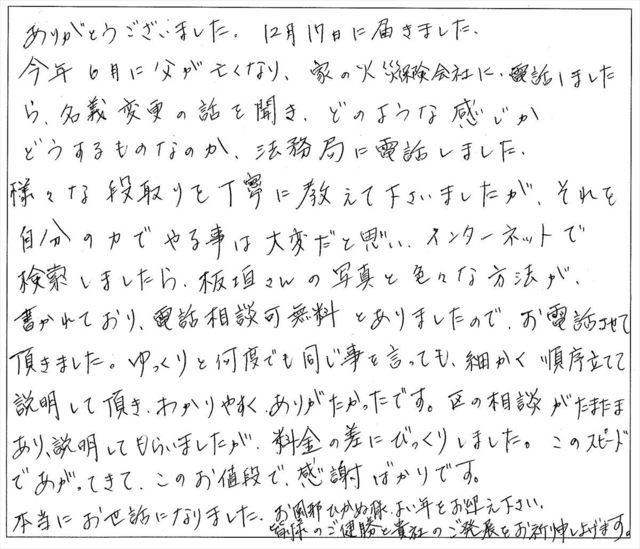 ありがとうございました。12月17日に届きました。
今年6月に父が亡くなり、家の火災保険会社に、電話しました
ら、名義変更の話を聞き、どのような感じか
どうするものなのか、法務局に電話しました。
様々な段取りを丁寧に教えて下さいましたが、それを
自分の力でやる事は大変だと思い、インターネットで
検索しましたら、板垣さんの写真と色々な方法が、
書かれており、電話相談可無料とありましたので、お電話させて
頂きました。ゆっくりと何度でも同じ事を言っても、細かく順序立てて
説明して頂き、わかりやすく、ありがたかったです。区の相談がたまたま
あり、説明してもらいましたが、料金の差にびっくりしました。このスピード
であがってきて、このお値段で、感謝ばかりです。
本当にお世話になりました。お風邪ひかぬ様、よい年をお迎え下さい。
皆様のご健勝と貴社のご発展をお祈り申し上げます。